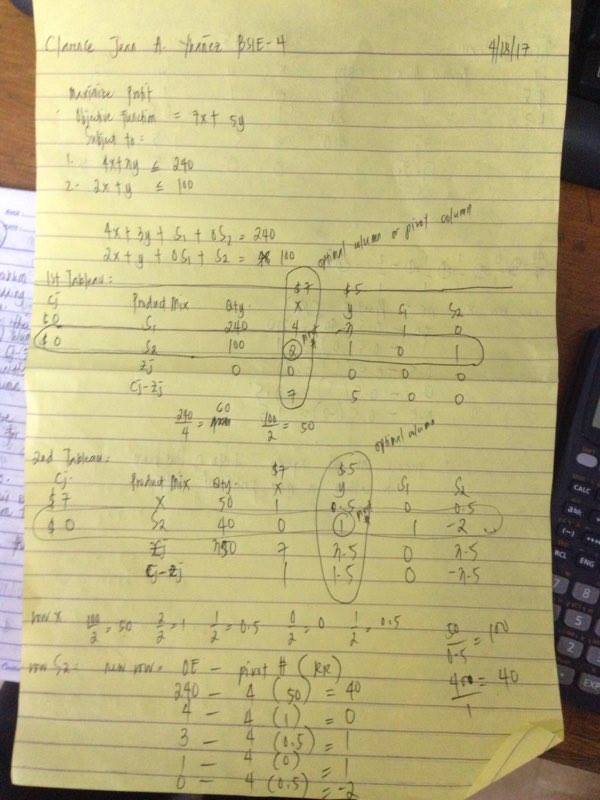 Clarence Juan A. Ybañez BSIE-4 4/18/17
Maximize Profit
Objective Function = 7x + 5y
Subject to:
1. 4x+3y ≤ 240
2. 2x+y ≤ 100
4x + 3y + S1 + 0S2 = 240
2x + y + 0S1 + S2 = 100
optimal column or pivot column
1st Tableau:
$7 $5
Cj Product Mix Qty. x y S1 S2
$0 S1 240 4 3 1 0
$0 S2 100 2 1 0 1
Zj 0 0 0 0 0
Cj-Zj 7 5 0 0
240/4 = 60 100/2 = 50
optimal column
2nd Tableau:
$7 $5
Cj Product Mix Qty. x y S1 S2
$7 x 50 1 0.5 0 0.5
$0 S2 40 0 1 1 -2
Zj 350 7 3.5 0 3.5
Cj-Zj 1 1.5 0 -3.5
row x 100/2 = 50 2/2 = 1 1/2 = 0.5 0/2 = 0 1/2 = 0.5
50/0.5 = 100
row S2: new row = OE - pivot # (RR)
240 - 4 (50) = 40
40/1 = 40
4 - 4 (1) = 0
3 - 4 (0.5) = 1
1 - 4 (0) = 1
0 - 4 (0.5) = -2
CALC
RCL ENG